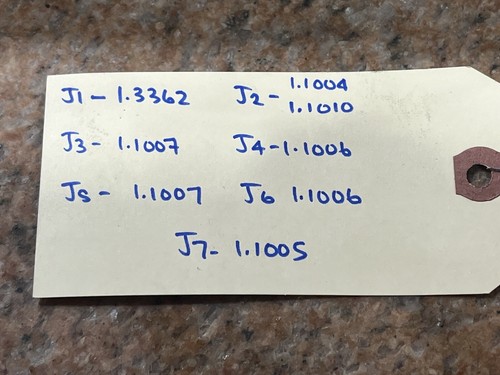 J1 - 1.3362 J2 - 1.1004
1.1010
J3 - 1.1007 J4 - 1.1006
J5 - 1.1007 J6 1.1006
J7 - 1.1005